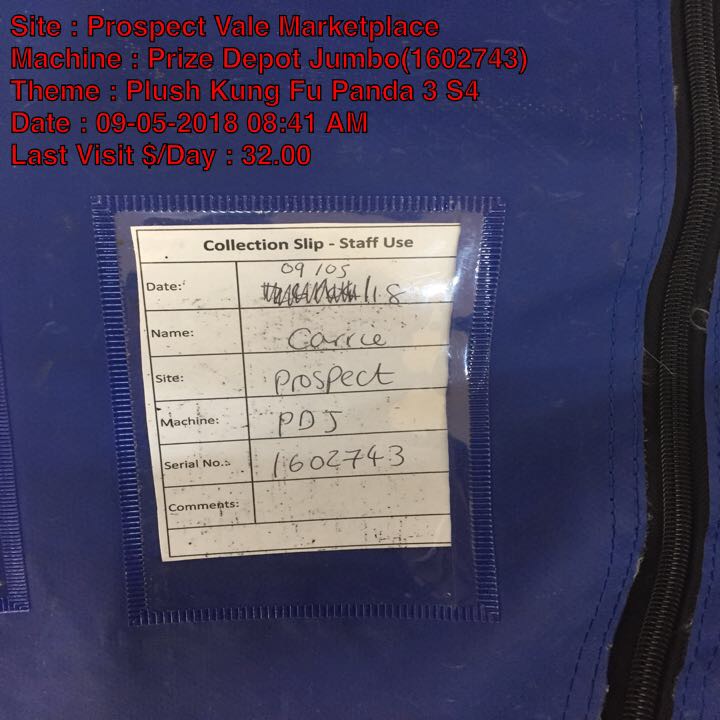 Site : Prospect Vale Marketplace
Machine : Prize Depot Jumbo(1602743)
Theme : Plush Kung Fu Panda 3 S4
Date : 09-05-2018 08:41 AM
Last Visit $/Day : 32.00
Collection Slip - Staff Use
09/05
Date: /18
Name: Carrie
Site: Prospect
Machine: PDJ
Serial No.: 1602743
Comments: